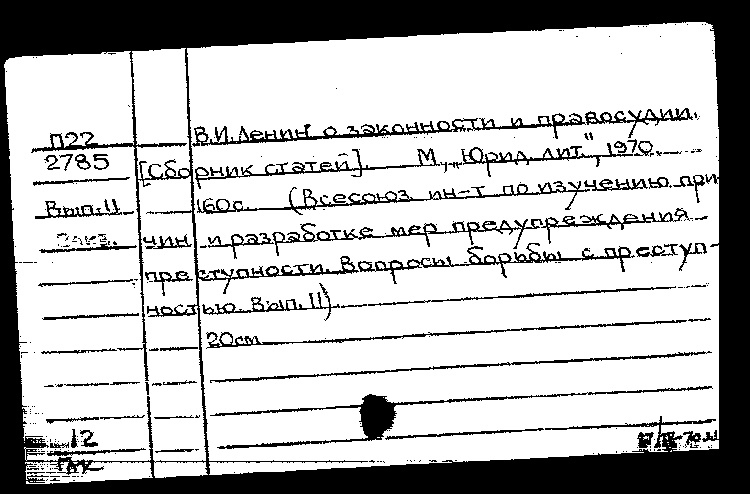 П22 В.И.Ленин о законности и правосудии.
2785 [Сборник статей]. М., „Юрид. лит.", 1970.
Вып.11 160с. (Всесоюз. ин-т по изучению при-
чин и разработке мер предупреждения
преступности. Вопросы борьбы с преступ-
ностью. Вып. 11).
20см
12
ГАК